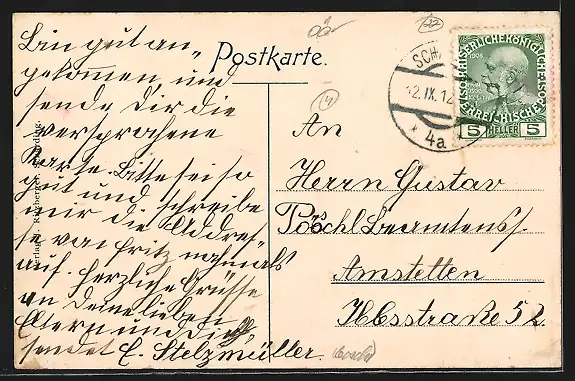 Postkarte.
Bin gut an-
gekommen und
sende Dir die
versprochene
Karte. Bitte sei so
gut und schreibe
mir die Addres-
se von Fritz nochmals
auf. Herzliche Grüsse
an Deine lieben
Eltern und Dich
sendet E. Stelzmüller.
An
Herrn Gustav
Pöschl Beamtenss.
Amstetten
Ybbsstraße 52
SCH
12.IX.12
* 4a
KAISERLICHE KÖNIGLICHE
ÖSTERREICHISCHE
5 HELLER 5